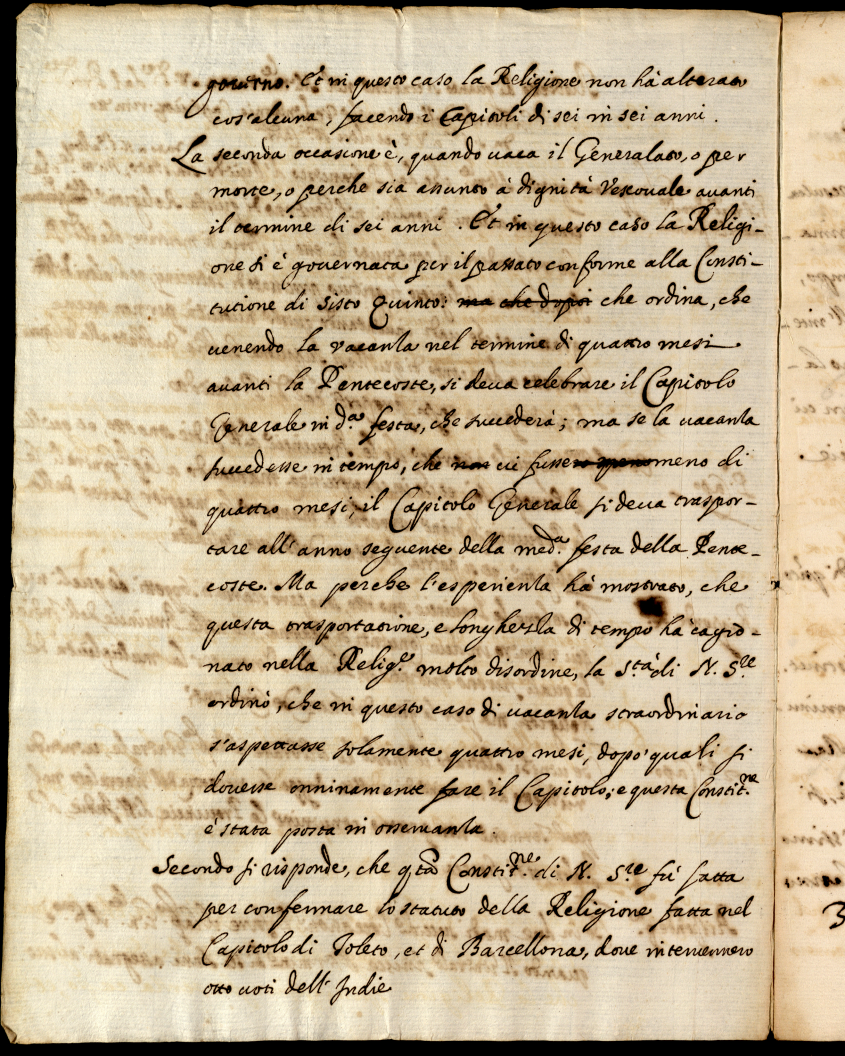 gouerno. Et in questo caso la Religione non hà alterato
cos'alcuna, facendo i Capitoli di sei in sei anni.
La seconda occasione è, quando uaca il Generalato, o per
morte, o perche sia assunto à dignità Vescouale auanti
il termine di sei anni. Et in questo caso la Religi-
one si è gouernata per il passato conforme alla Consti-
tutione di Sisto Quinto: ma che dopoi che ordina, che
uenendo la vacanza nel termine di quattro mesi
auanti la Pentecoste, si deua celebrare il Capitolo
Generale in d.ª festa, che succederà; ma se la uacanza
succedesse in tempo, che non ui fussero meno di
quattro mesi, il Capitolo Generale si deua traspor-
tare all'anno seguente della med.ª festa della Pente-
coste. Ma perche l'esperienza hà mostrato, che
questa trasportatione, e longhezza di tempo hà cagio-
nato nella Relig.e molto disordine, la S.tà di N. S.re
ordinò, che in questo caso di uacanza straordinario
s'aspettasse solamente quattro mesi, dopo' quali si
douesse onninamente fare il Capitolo; e questa Constit.ne
è stata posta in osseruanza.
Secondo si risponde, che q.ta Constit.ne di N. S.re fù fatta
per confermare lo statuto della Religione fatta nel
Capitolo di Toleto, et di Barcellona, doue interuennero
otto uoti dell'Indie
3